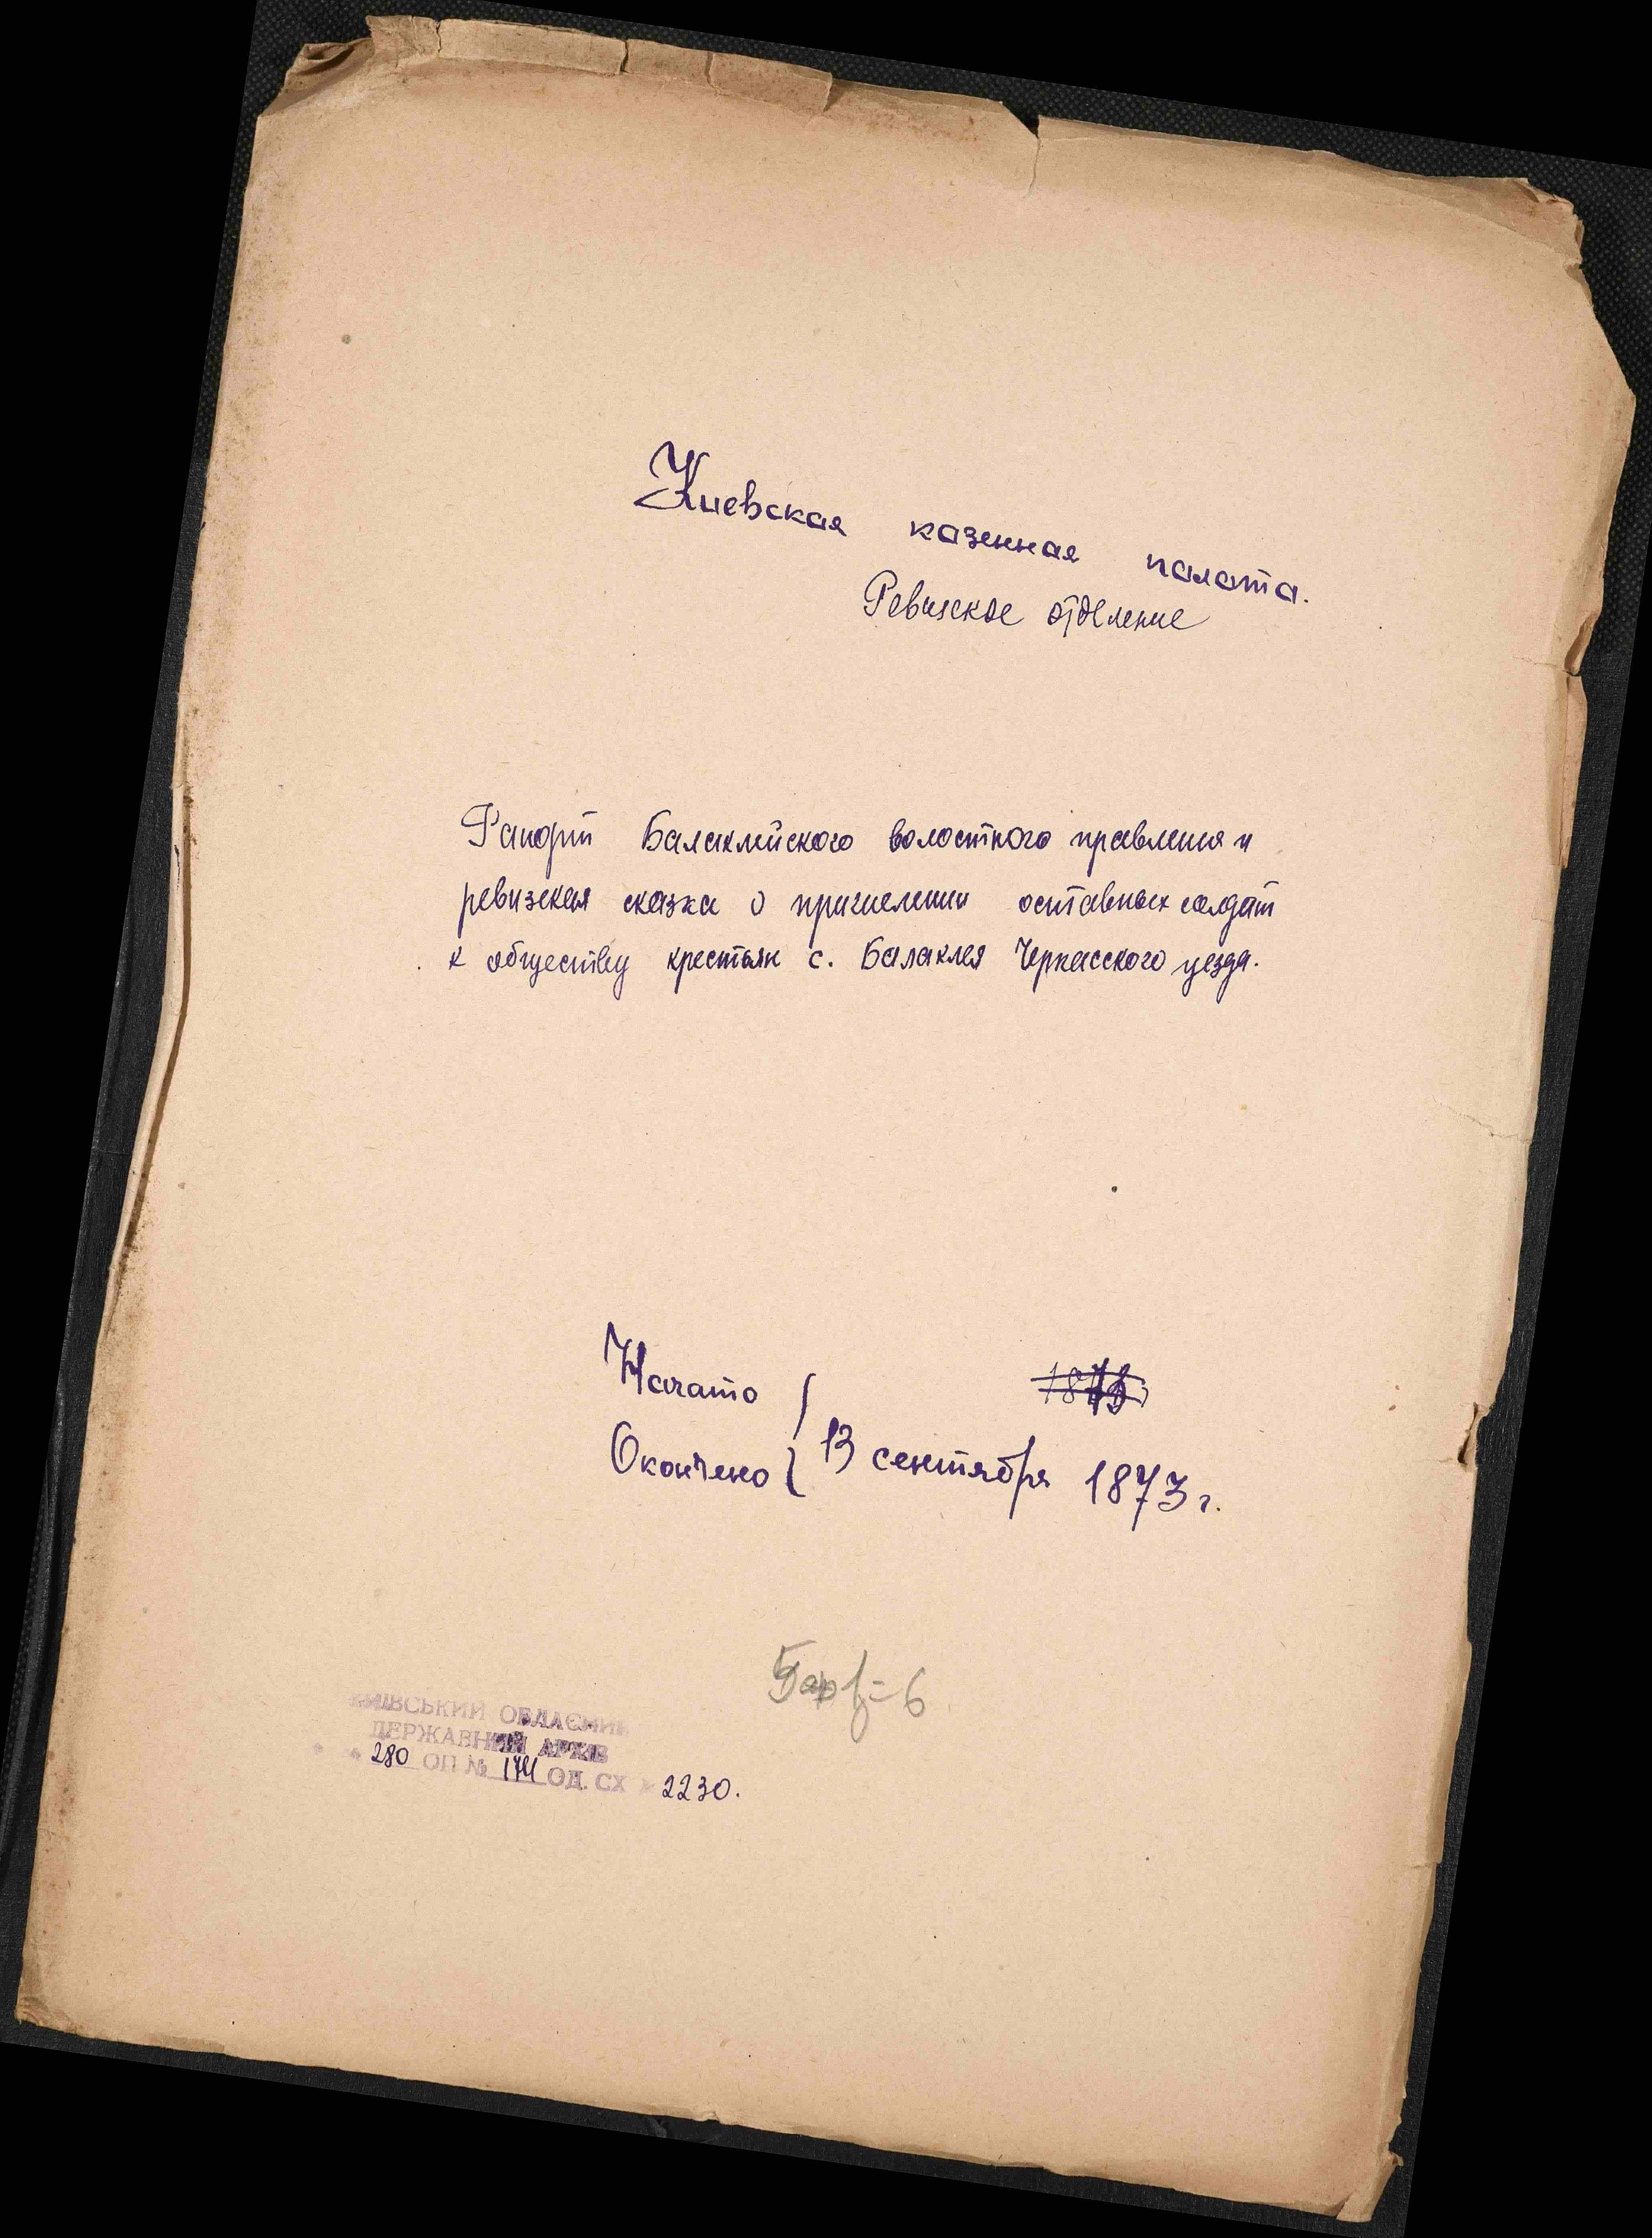 Киевская казенная палата.
Ревизское отделение
Рапорт Балаклейского волостного правления и
ревизская сказка о причислении отставных солдат
к обществу крестьян с. Балаклея Черкасского уезда.
Начато
Окончено 13 сентября 1873 г.
КИЇВСЬКИЙ ОБЛАСНИЙ
ДЕРЖАВНИЙ АРХІВ
280 ОП № 174 ОД. СХ 2230.